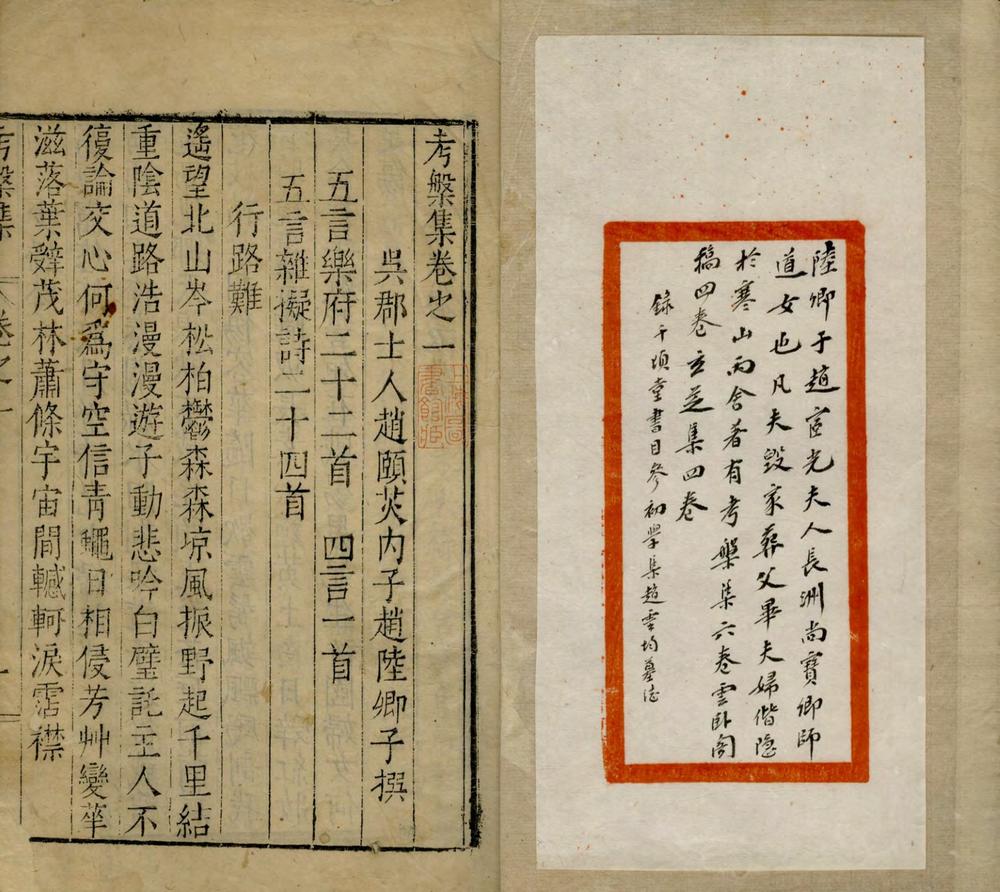 陸卿子趙宧光夫人長洲尚寶卿師
道女也凡夫毀家葬父畢夫婦偕隱
於寒山丙舍著有考槃集六卷雲臥閣
稿四卷玄芝集四卷
錄千頃堂書目參初學集趙靈均墓志
考槃集卷之一
上海圖書館臧
吳郡士人趙頤茨内子趙陸卿子撰
五言樂府二十二首　四言一首
五言雜擬詩二十四首
行路難
遙望北山岑松柏鬱森森凉風振野起千里結
重陰道路浩漫漫遊子動悲吟白璧託主人不
復論交心何爲守空信青蠅日相侵芳艸變華
滋落葉辤茂林蕭條宇宙間轗軻淚霑襟
考槃集　卷之一　一